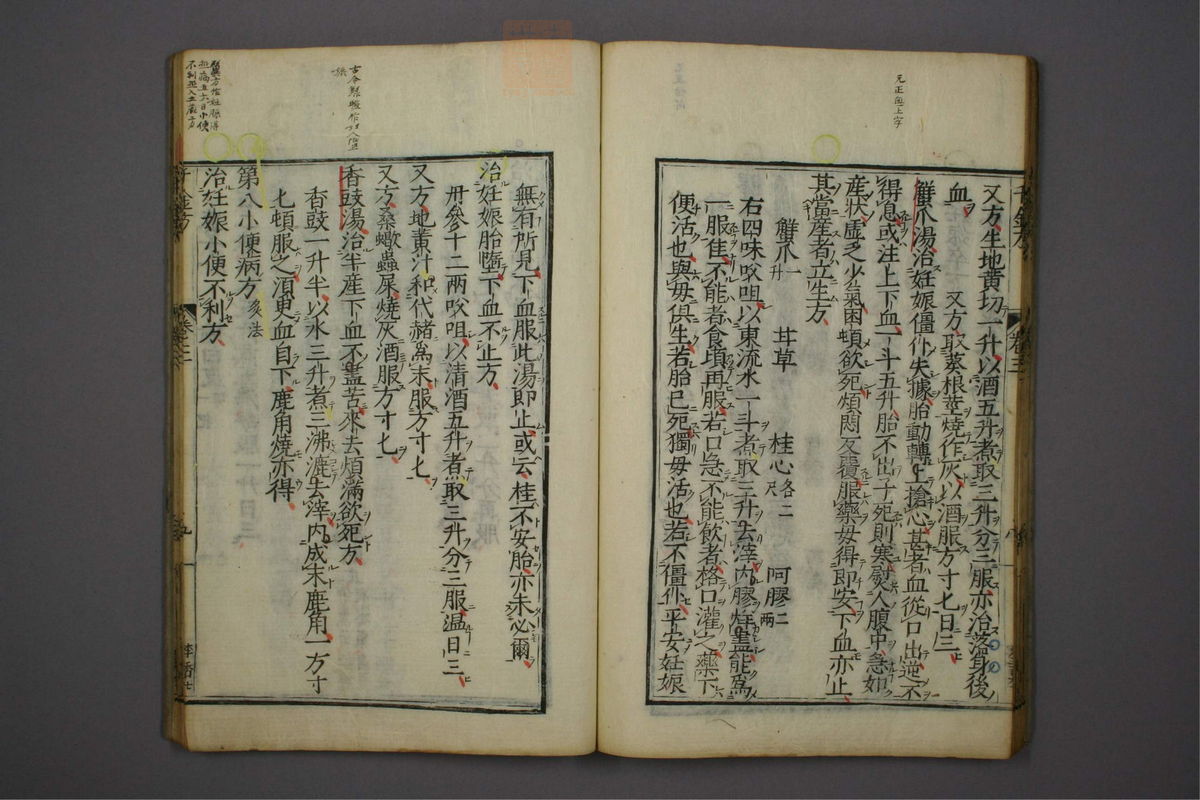 又方生地黃切一升以酒五升煮取三升分三服亦治落身後
血 又方取葵根莖燒作灰以酒服方寸匕日三
蟹爪湯治妊娠僵仆失據胎動轉上搶心甚者血從口出逆不
得息或注上下血一斗五升胎不出子死則寒熨人腹中急如
產狀虛乏少氣困頓欲死煩悶反覆服藥母得即安下血亦止
其當產者立生方
蟹爪一升 甘草 桂心各二尺 阿膠二兩
右四味㕮咀以東流水一斗煮取三升去滓內膠烊盡能爲
一服佳不能者食頃再服若口急不能飲者格口灌之藥下
便活也與母俱生若胎已死獨母活也若不僵仆平安妊娠
無有所見下血服此湯即止或云桂不安胎亦未必爾
治妊娠胎墮下血不止方
丹參十二兩㕮咀以清酒五升煮取三升分三服温日三
又方地黃汁和代赭爲末服方寸匕
又方桑蠍蟲屎燒灰酒服方寸匕
香豉湯治半產下血不盡苦來去煩滿欲死方
香豉一升半以水三升煮三沸漉去滓內成末鹿角一方寸
匕頓服之須臾血自下鹿角燒亦得
第八小便病方 灸法
治妊娠小便不利方